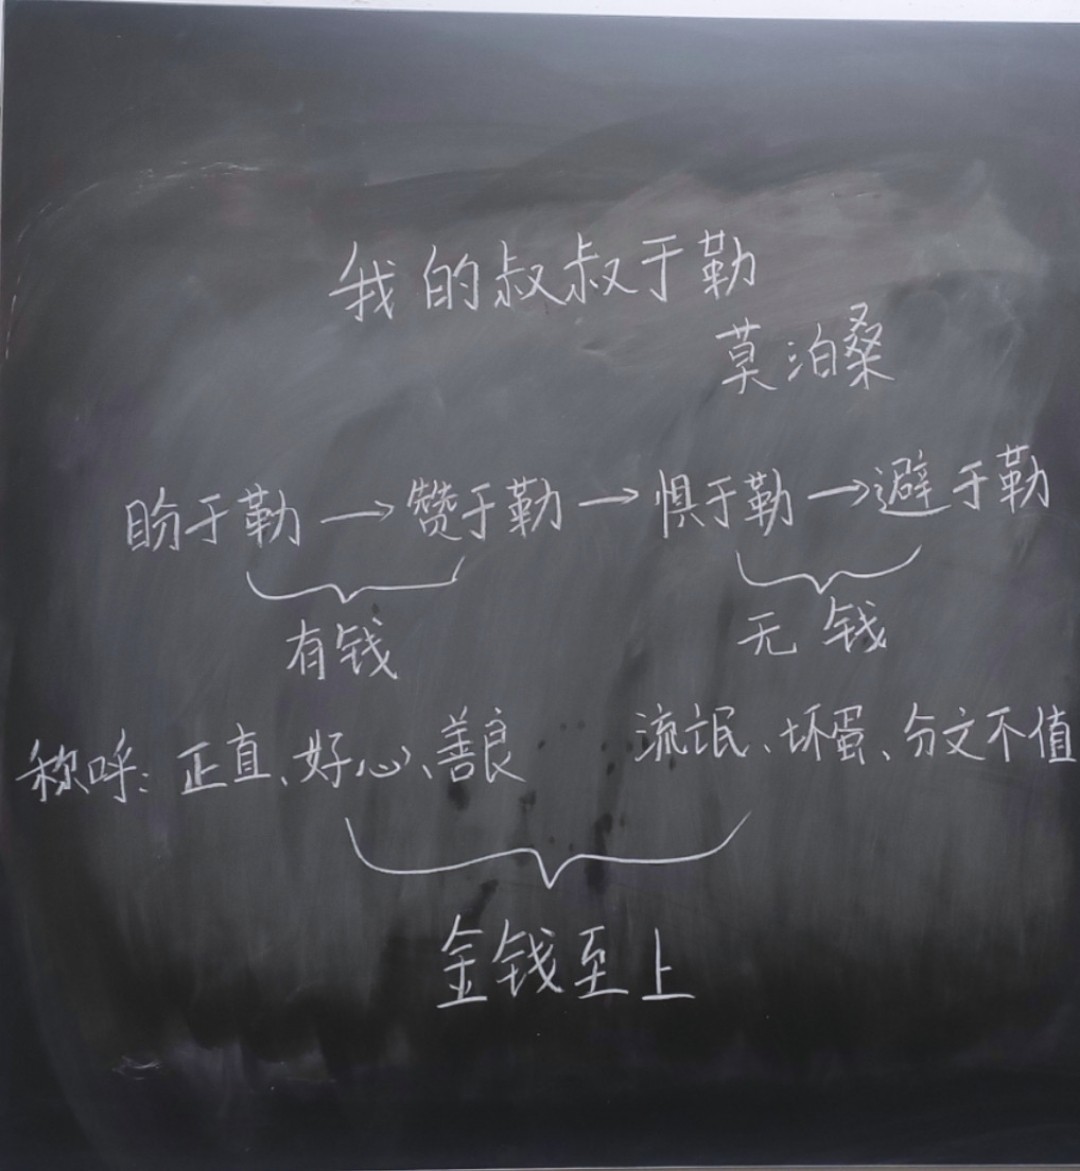 我的叔叔于勒
莫泊桑
盼于勒→赞于勒→惧于勒→避于勒
有钱 无钱
称呼：正直、好心、善良 流氓、坏蛋、分文不值
金钱至上